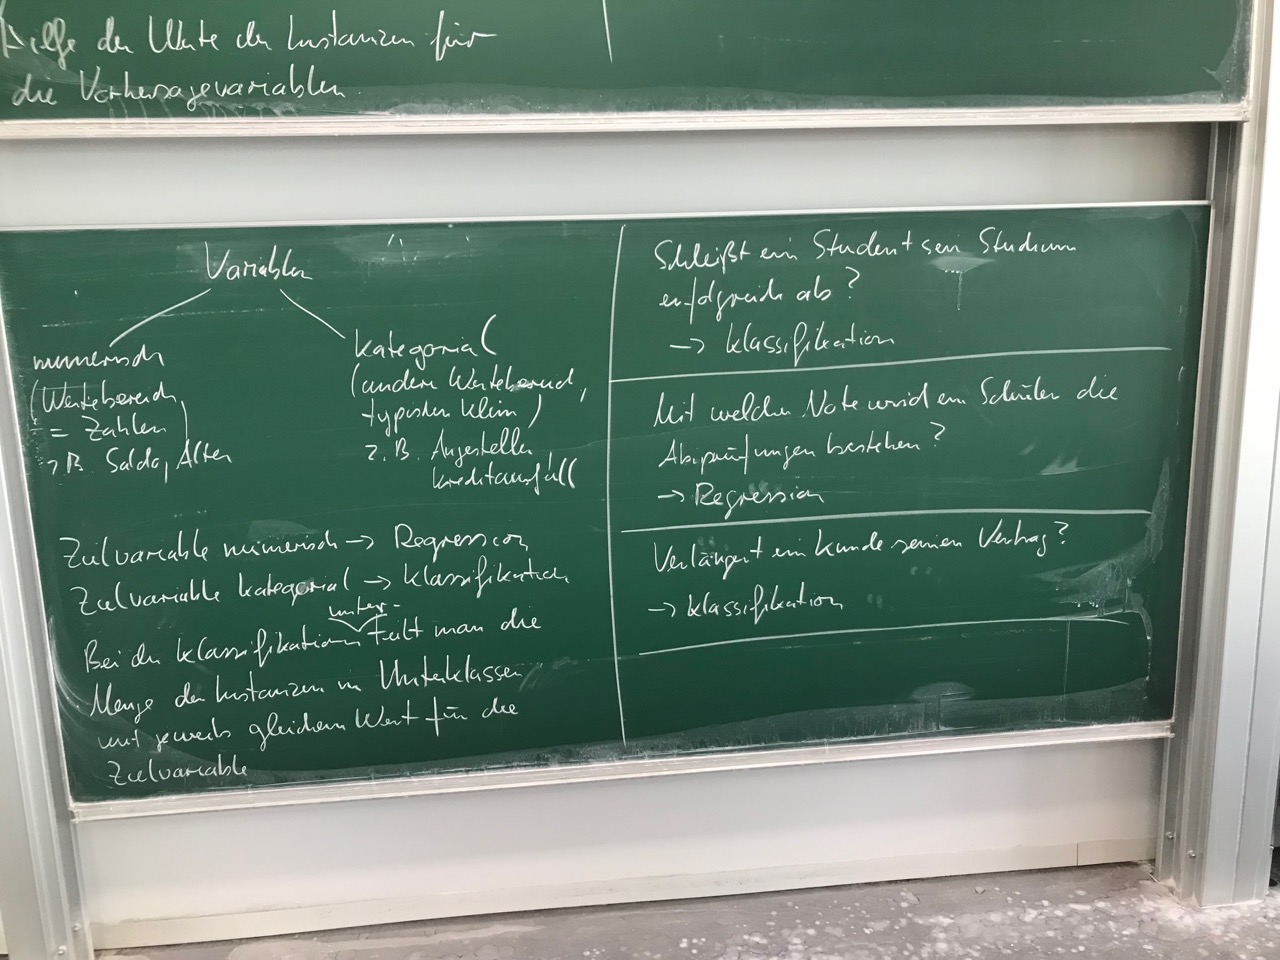 Hilfe der Werte der Instanzen für
die Vorhersagevariablen
Variablen
numerisch
(Wertebereich
= Zahlen)
z.B. Saldo, Alter
kategorial
(anderer Wertebereich,
typischen klein)
z.B. Angestellt,
Kreditausfall
Zielvariable numerisch → Regression
Zielvariable kategorial → Klassifikation
Bei der Klassifikation unter-teilt man die
Menge der Instanzen in Unterklassen
mit jeweils gleichem Wert für die
Zielvariable
Schließt ein Student sein Studium
erfolgreich ab?
→ Klassifikation
Mit welcher Note wird ein Schüler die
Abiprüfungen bestehen?
→ Regression
Verlängert ein Kunde seinen Vertrag?
→ Klassifikation